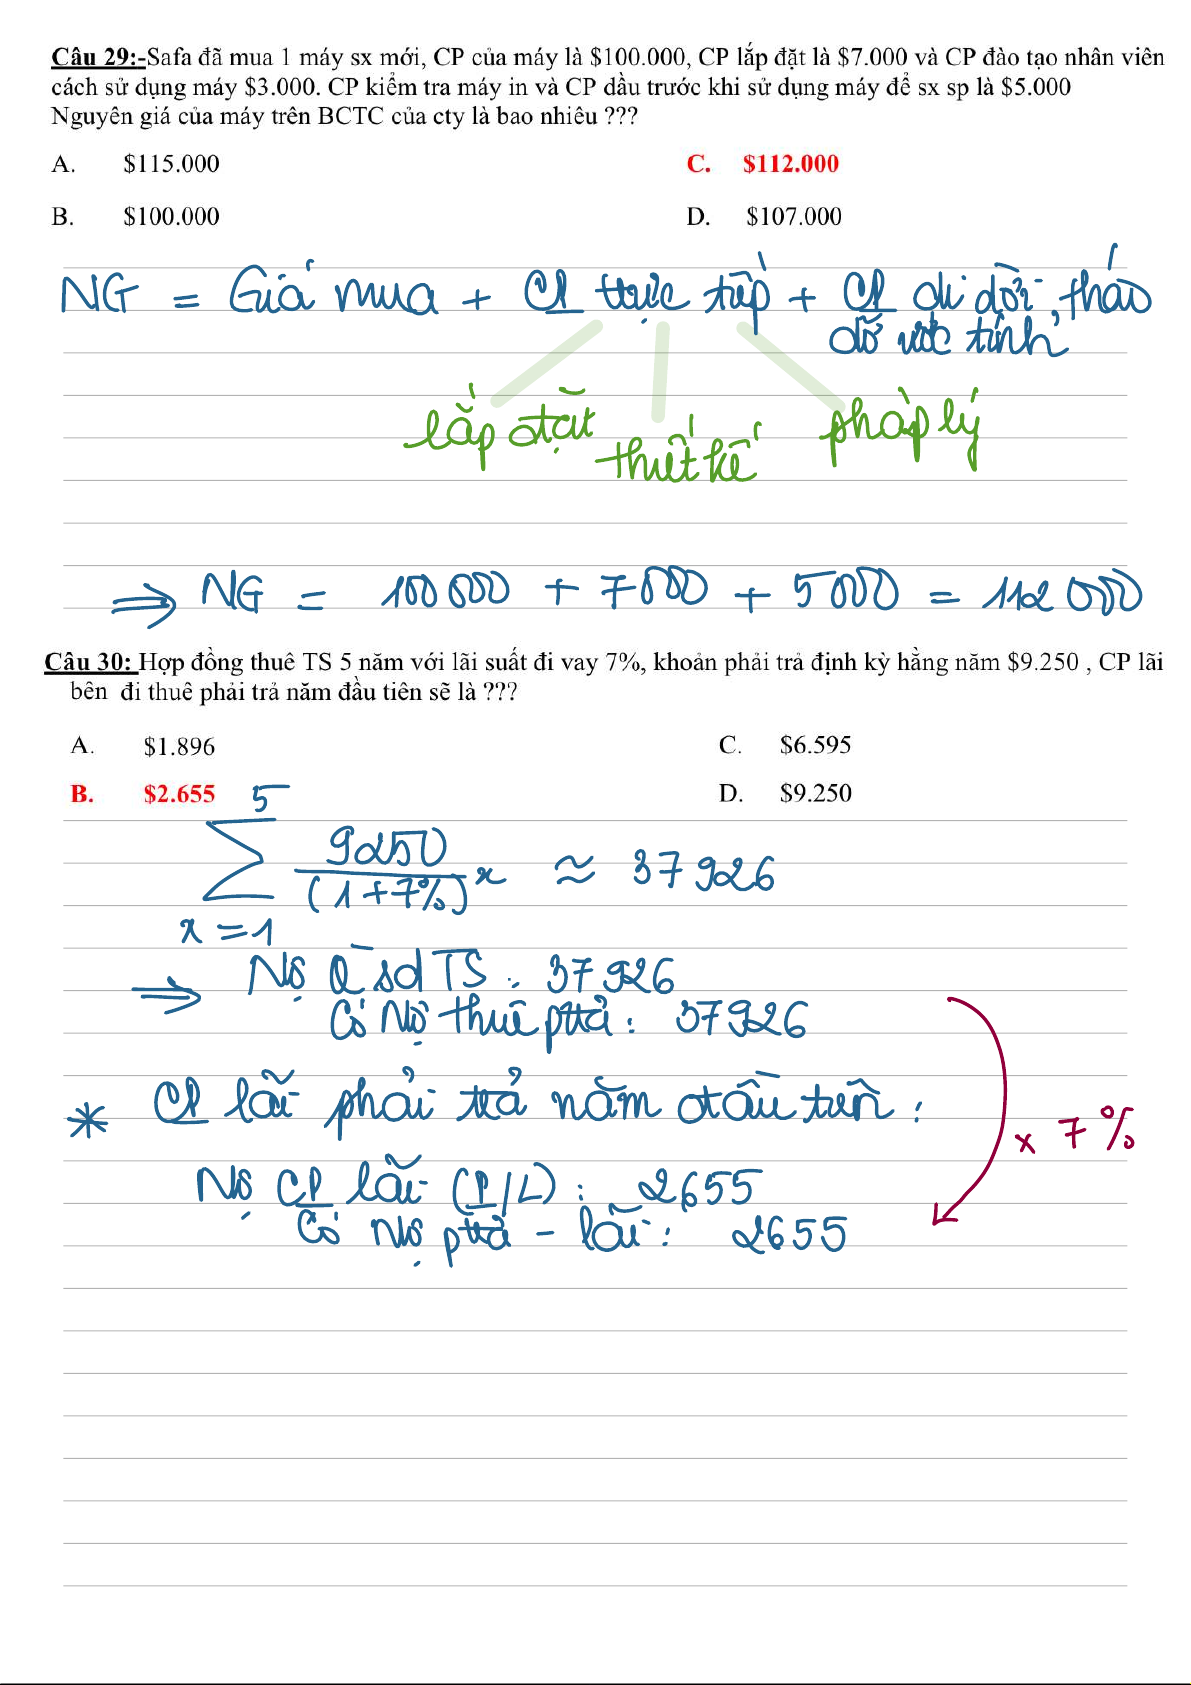 Câu 29:-Safa đã mua 1 máy sx mới, CP của máy là $100.000, CP lắp đặt là $7.000 và CP đào tạo nhân viên
cách sử dụng máy $3.000. CP kiểm tra máy in và CP dầu trước khi sử dụng máy để sx sp là $5.000
Nguyên giá của máy trên BCTC của cty là bao nhiêu ???
A. $115.000 C. $112.000
B. $100.000 D. $107.000
NG = Giá mua + CP trực tiếp + CP di dời, tháo
dỡ ước tính
lắp đặt thiết kế pháp lý
⇒ NG = 100 000 + 7 000 + 5 000 = 112 000
Câu 30: Hợp đồng thuê TS 5 năm với lãi suất đi vay 7%, khoản phải trả định kỳ hằng năm $9.250 , CP lãi
bên đi thuê phải trả năm đầu tiên sẽ là ???
A. $1.896 C. $6.595
B. $2.655 D. $9.250
5
∑ 9250 / (1+7%)^x ≈ 37 926
x = 1
⇒ Nợ Q sd TS : 37 926
Có Nợ thuê ptrả : 37926
* CP lãi phải trả năm đầu tiên :
x 7%
Nợ CP lãi (P/L) : 2655
Có Nợ ptrả - lãi : 2655